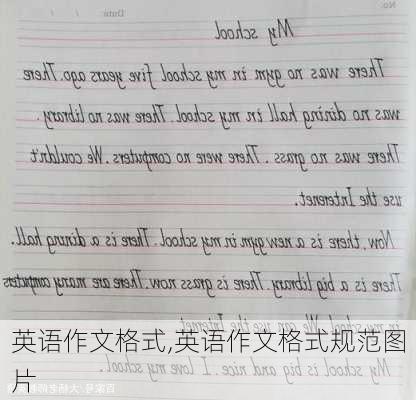 No.
Date: / /
My school
There was no gym in my school five years ago. There
was no dining hall in my school. There was no library.
There was no grass. There were no computers. We couldn't
use the Interenet.
Now, there is a new gym in my school. There is a dining hall.
There is a big library. There is grass now. There are many computers
in my school. We can use the Internet
My school is big and nice. I love my school.
英语作文格式,英语作文格式规范图
片